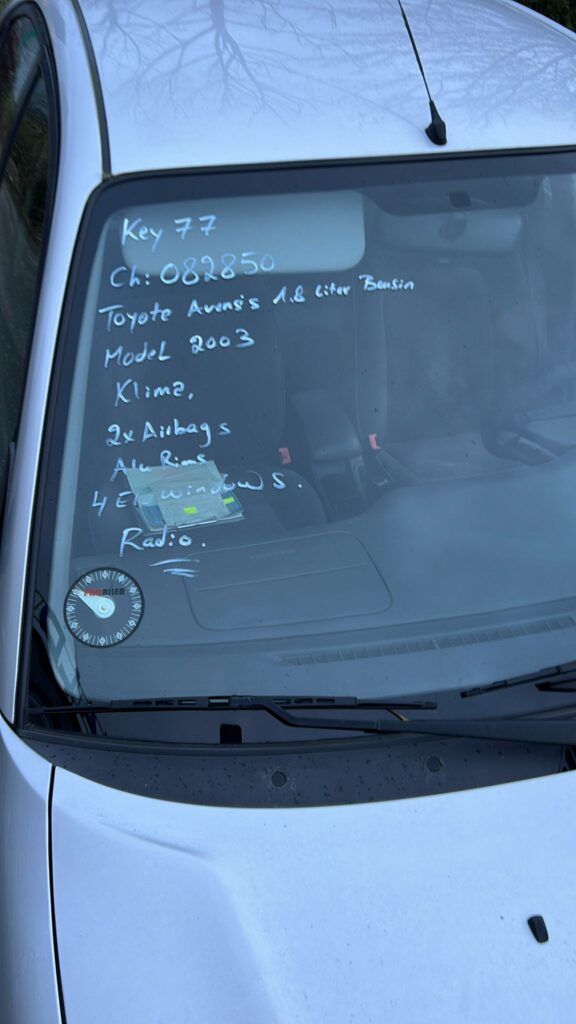 Key 77
Ch: 082850
Toyote Avensis 1.8 Liter Bensin
Model 2003
Klima.
2x Airbags
Alu Rims
4 El windows.
Radio.
PROBILER